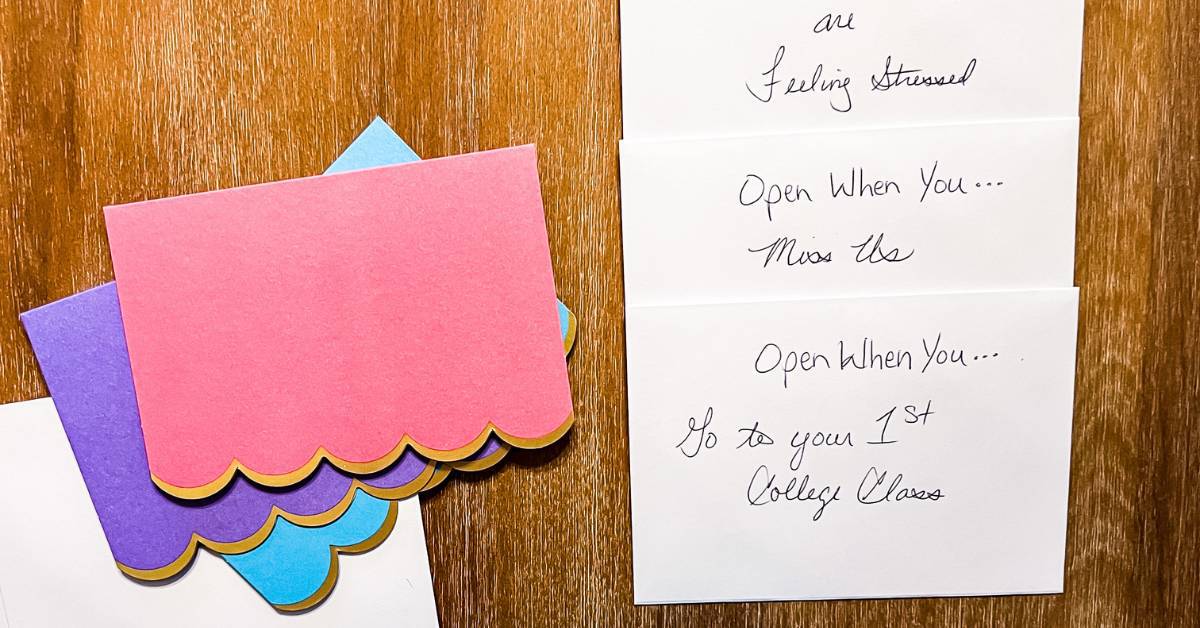 are
Feeling Stressed
Open When You...
Miss Us
Open When You...
Go to your 1st
College Class